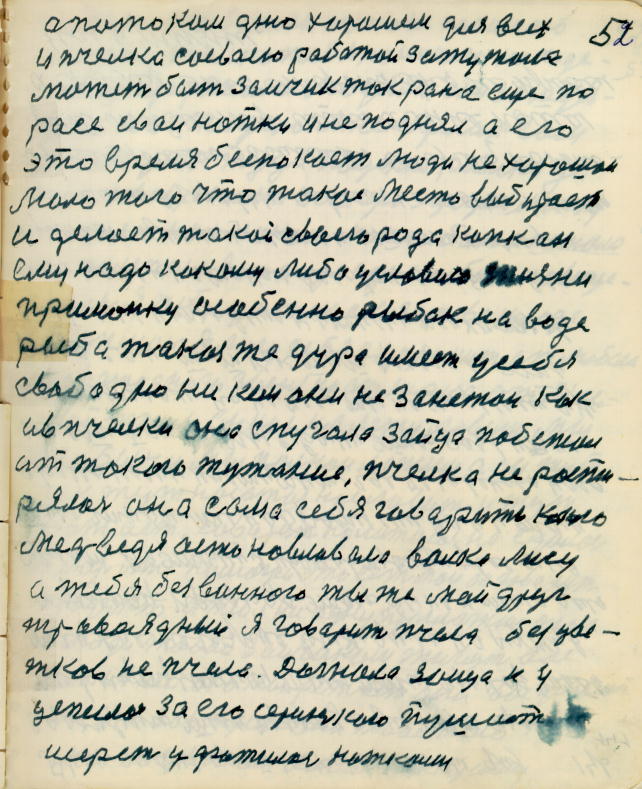 52
а потоком дно хорошем для всех
и пчелка соеваею работой зажужжала
может быт заичик ток рана еще по
расе сваи нотки и не поднял а его
это время беспокоет люди не хорошаи
мало того что такое место выбирает
и делоет такой своего рода капкан
ему надо какому либо
приманку особенно рыбак на воде
рыба такая же дура имеет у себя
свабодно ни кем они не занетои как
ив пчелки она спугала зайца побежал
от такого жужание, пчелка не расти-
рялас она сама себя гаварить кого
медведя остоновлавала волка лису
а тебя безвинного ты же май друг
травоядный я гаварит пчела без цве-
тков не пчела. Догнала зоица и у
цепилас за его сериньково
шерст ухватилас ножками